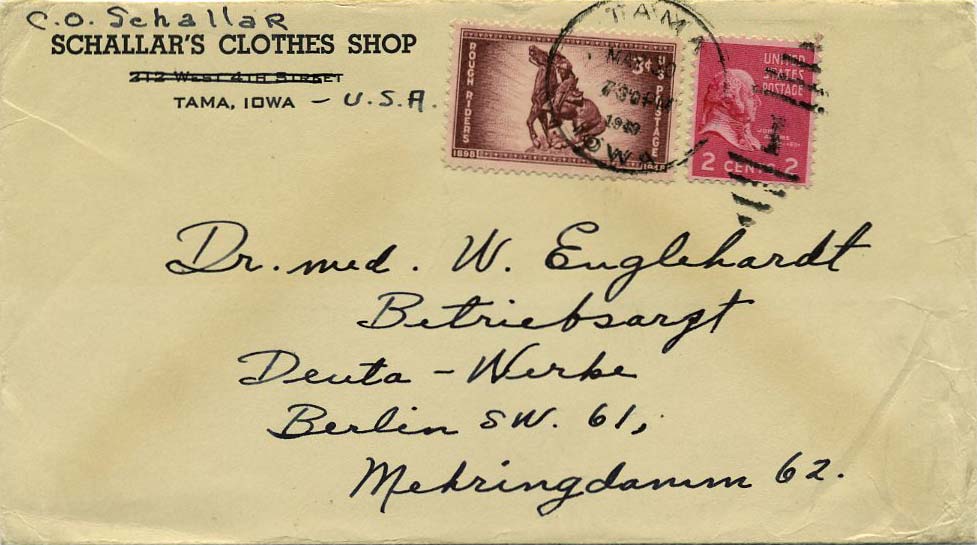 C.O. Schallar
SCHALLAR'S CLOTHES SHOP
212 WEST 4TH STREET
TAMA, IOWA - U.S.A.
ROUGH RIDERS
1898
3¢
U S POSTAGE
1948
TAMA
7 30 PM
1949
IOWA
UNITED
STATES
POSTAGE
JOHN
ADAMS
2 CENTS 2
1
Dr. med. W. Englehardt
Betriebsarzt
Deuta - Werke
Berlin SW. 61,
Mehringdamm 62.